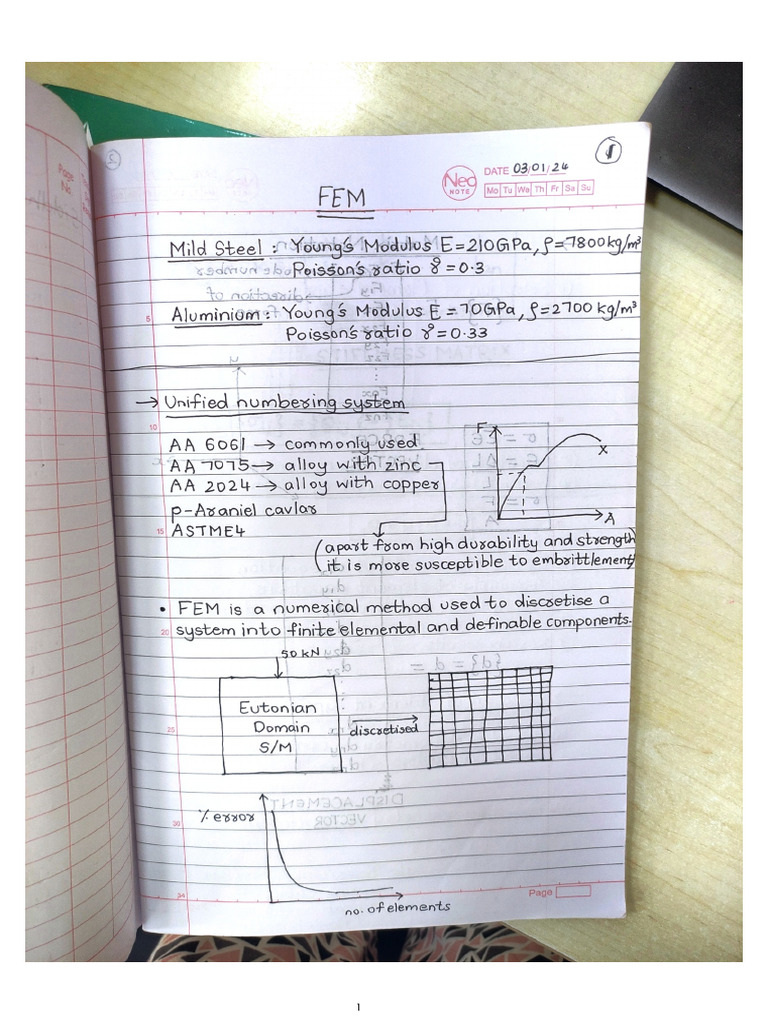 1
Ned
NOTE
DATE 03/01/24
Mo Tu We Th Fr Sa Su
Page No.
FEM
Mild Steel : Young's Modulus E=210GPa, ρ=7800kg/m³
Poisson's ratio γ=0.3
Aluminiom : Young's Modulus E=70GPa, ρ=2700 kg/m³
5
Poisson's ratio γ=0.33
→ Unified numbering system
10
AA 6061 → commonly used
AA 7075 → alloy with zinc
AA 2024 → alloy with copper
p-Araniel cavlar
15 ASTME4
F
X
A
(apart from high durability and strength
it is more susceptible to embrittlement)
• FEM is a numerical method used to discretise a
20 system into finite elemental and definable components.
50 kN
Eutonian
Domain
S/M
25
discretised
% error
30
no. of elements
34
Page
1